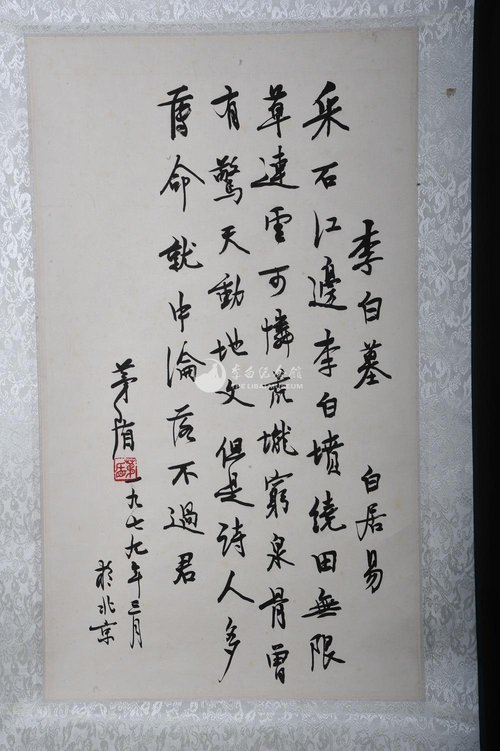 李白墓　白居易
采石江邊李白墳繞田無限
草連雲可憐荒壠窮泉骨曽
有驚天動地文但是詩人多
薄命就中淪落不過君
茅盾
一九七九年三月
於北京
李白纪念馆
THE LIBAI MUSEUM